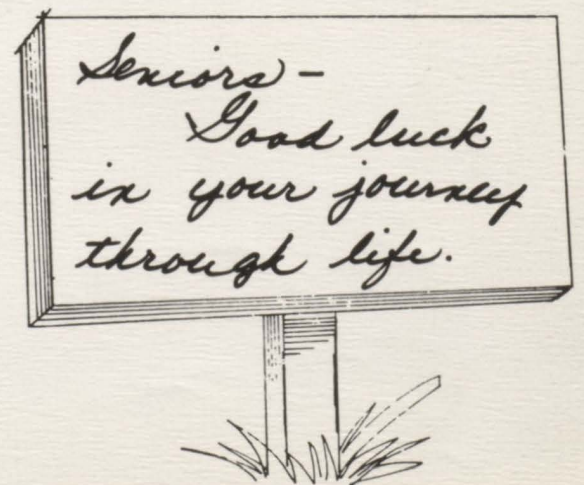 Seniors -
Good luck
in your journey
through life.